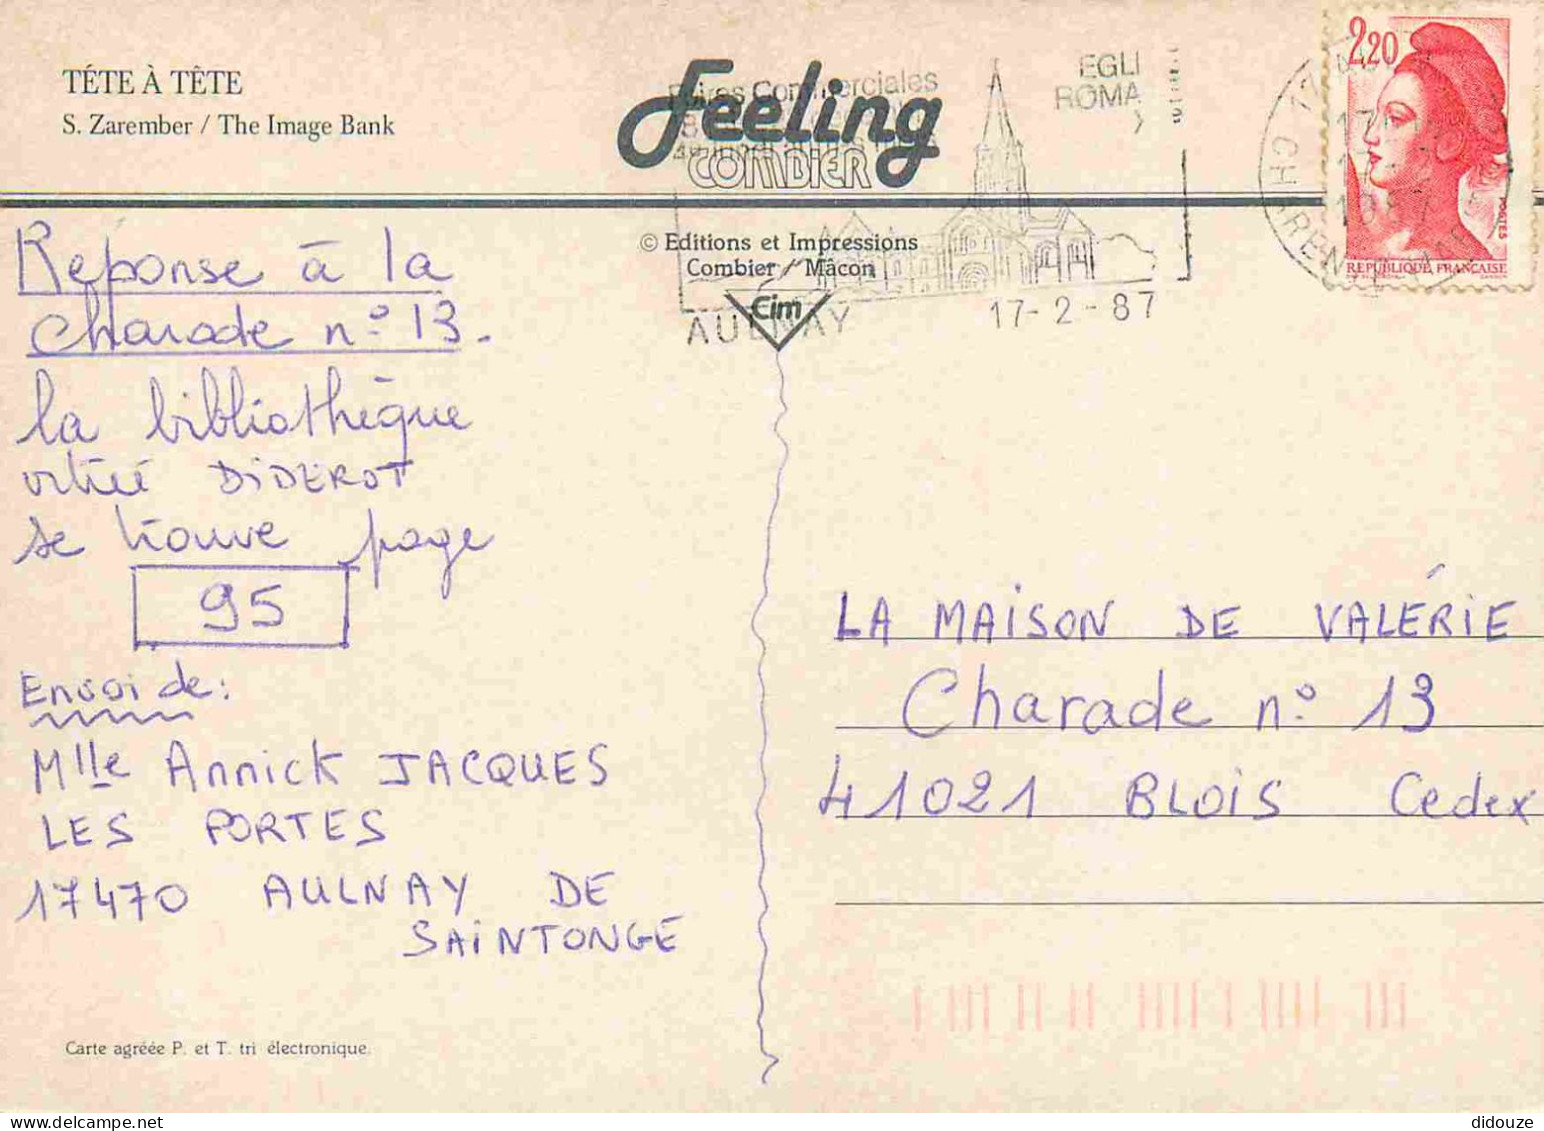 TÉTE À TÊTE
S. Zarember / The Image Bank
Feeling
COMBIER
Foires Commerciales
EGLI
ROMA
© Editions et Impressions
Combier / Mâcon
Cim
AULNAY
17-2-87
2,20
POSTES
REPUBLIQUE FRANÇAISE
Reponse à la
charade n° 13.
la bibliothèque
vitréé DIDEROT
se trouve page
95
Envoi de:
Mlle Annick JACQUES
LES PORTES
17470 AULNAY DE
SAINTONGE
LA MAISON DE VALÉRIE
Charade n° 13
41021 BLOIS Cedex
Carte agréée P. et T. tri électronique.
didouze